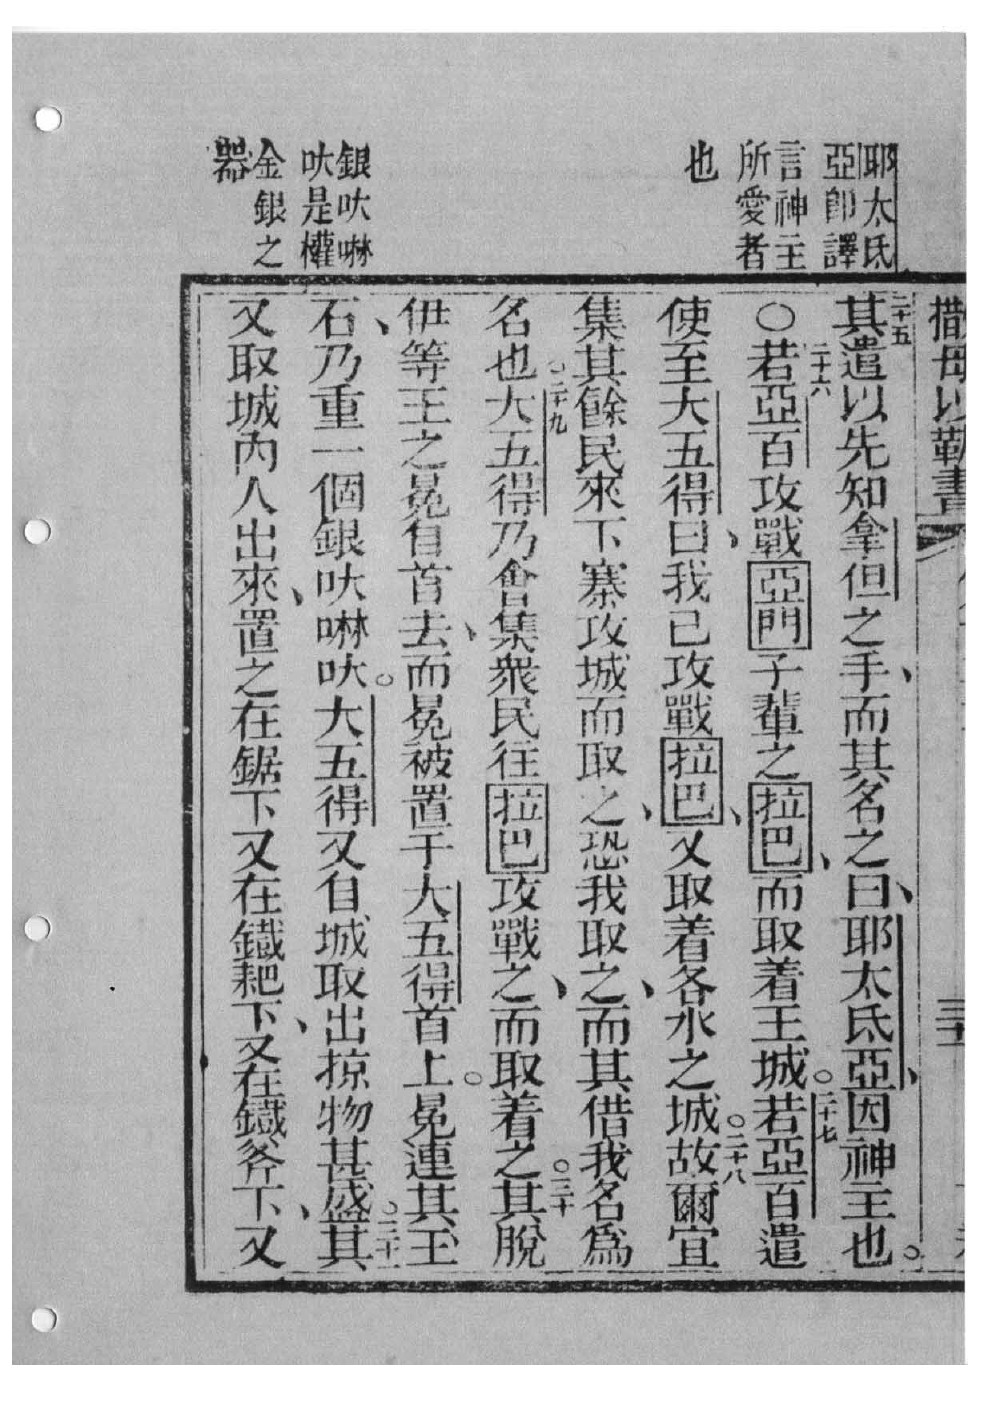 耶太氐
亞卽譯
言神主
所愛者
也
銀吠啉
吠是權
金銀之
器
撒母以勒書
二十五其遣以先知拿但之手、而其名之曰、耶太氐亞、因神主也。
○二十六若亞百攻戰亞門子輩之拉巴、而取着王城。二十七若亞百遣
使至大五得曰、我已攻戰拉巴、又取着各水之城。二十八故爾宜
集其餘民來下寨攻城而取之、恐我取之、而其借我名爲
名也。二十九大五得乃會集衆民往拉巴攻戰之、而取着之。三十其脫
伊等王之冕自首去、而冕被置于大五得首上。冕連其玉
石、乃重一個銀吠啉吠。大五得又自城取出掠物甚盛。三十一其
又取城內人出來、置之在鋸下又在鐵耙下、又在鐵斧下、又